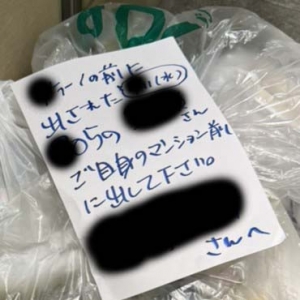 ラーノの前に
出された (水)
05の さん
ご自身のマンション前
に出して下さい。
さんへ